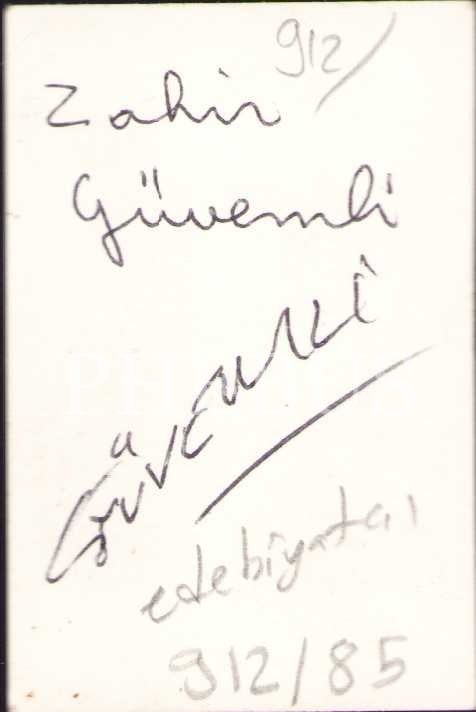 912/
Zahir
Güvemli
GÜVEMLİ
edebiyatçı
912/85